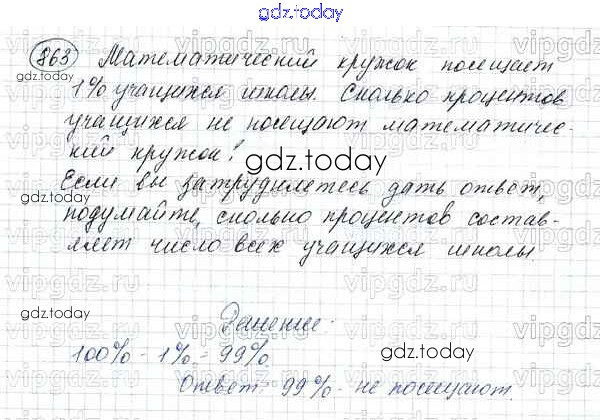 gdz.today
863 Математический кружок посещает
gdz.today
1% учащихся школы. Сколько процентов
учащихся не посещают математичес-
кий кружок?
gdz.today
Если вы затрудняетесь дать ответ,
gdz.today
подумайте, сколько процентов состав-
ляет число всех учащихся школы.
gdz.today
Решение:
100% - 1% = 99%
gdz.today
Ответ: 99% - не посещают.
vipgdz